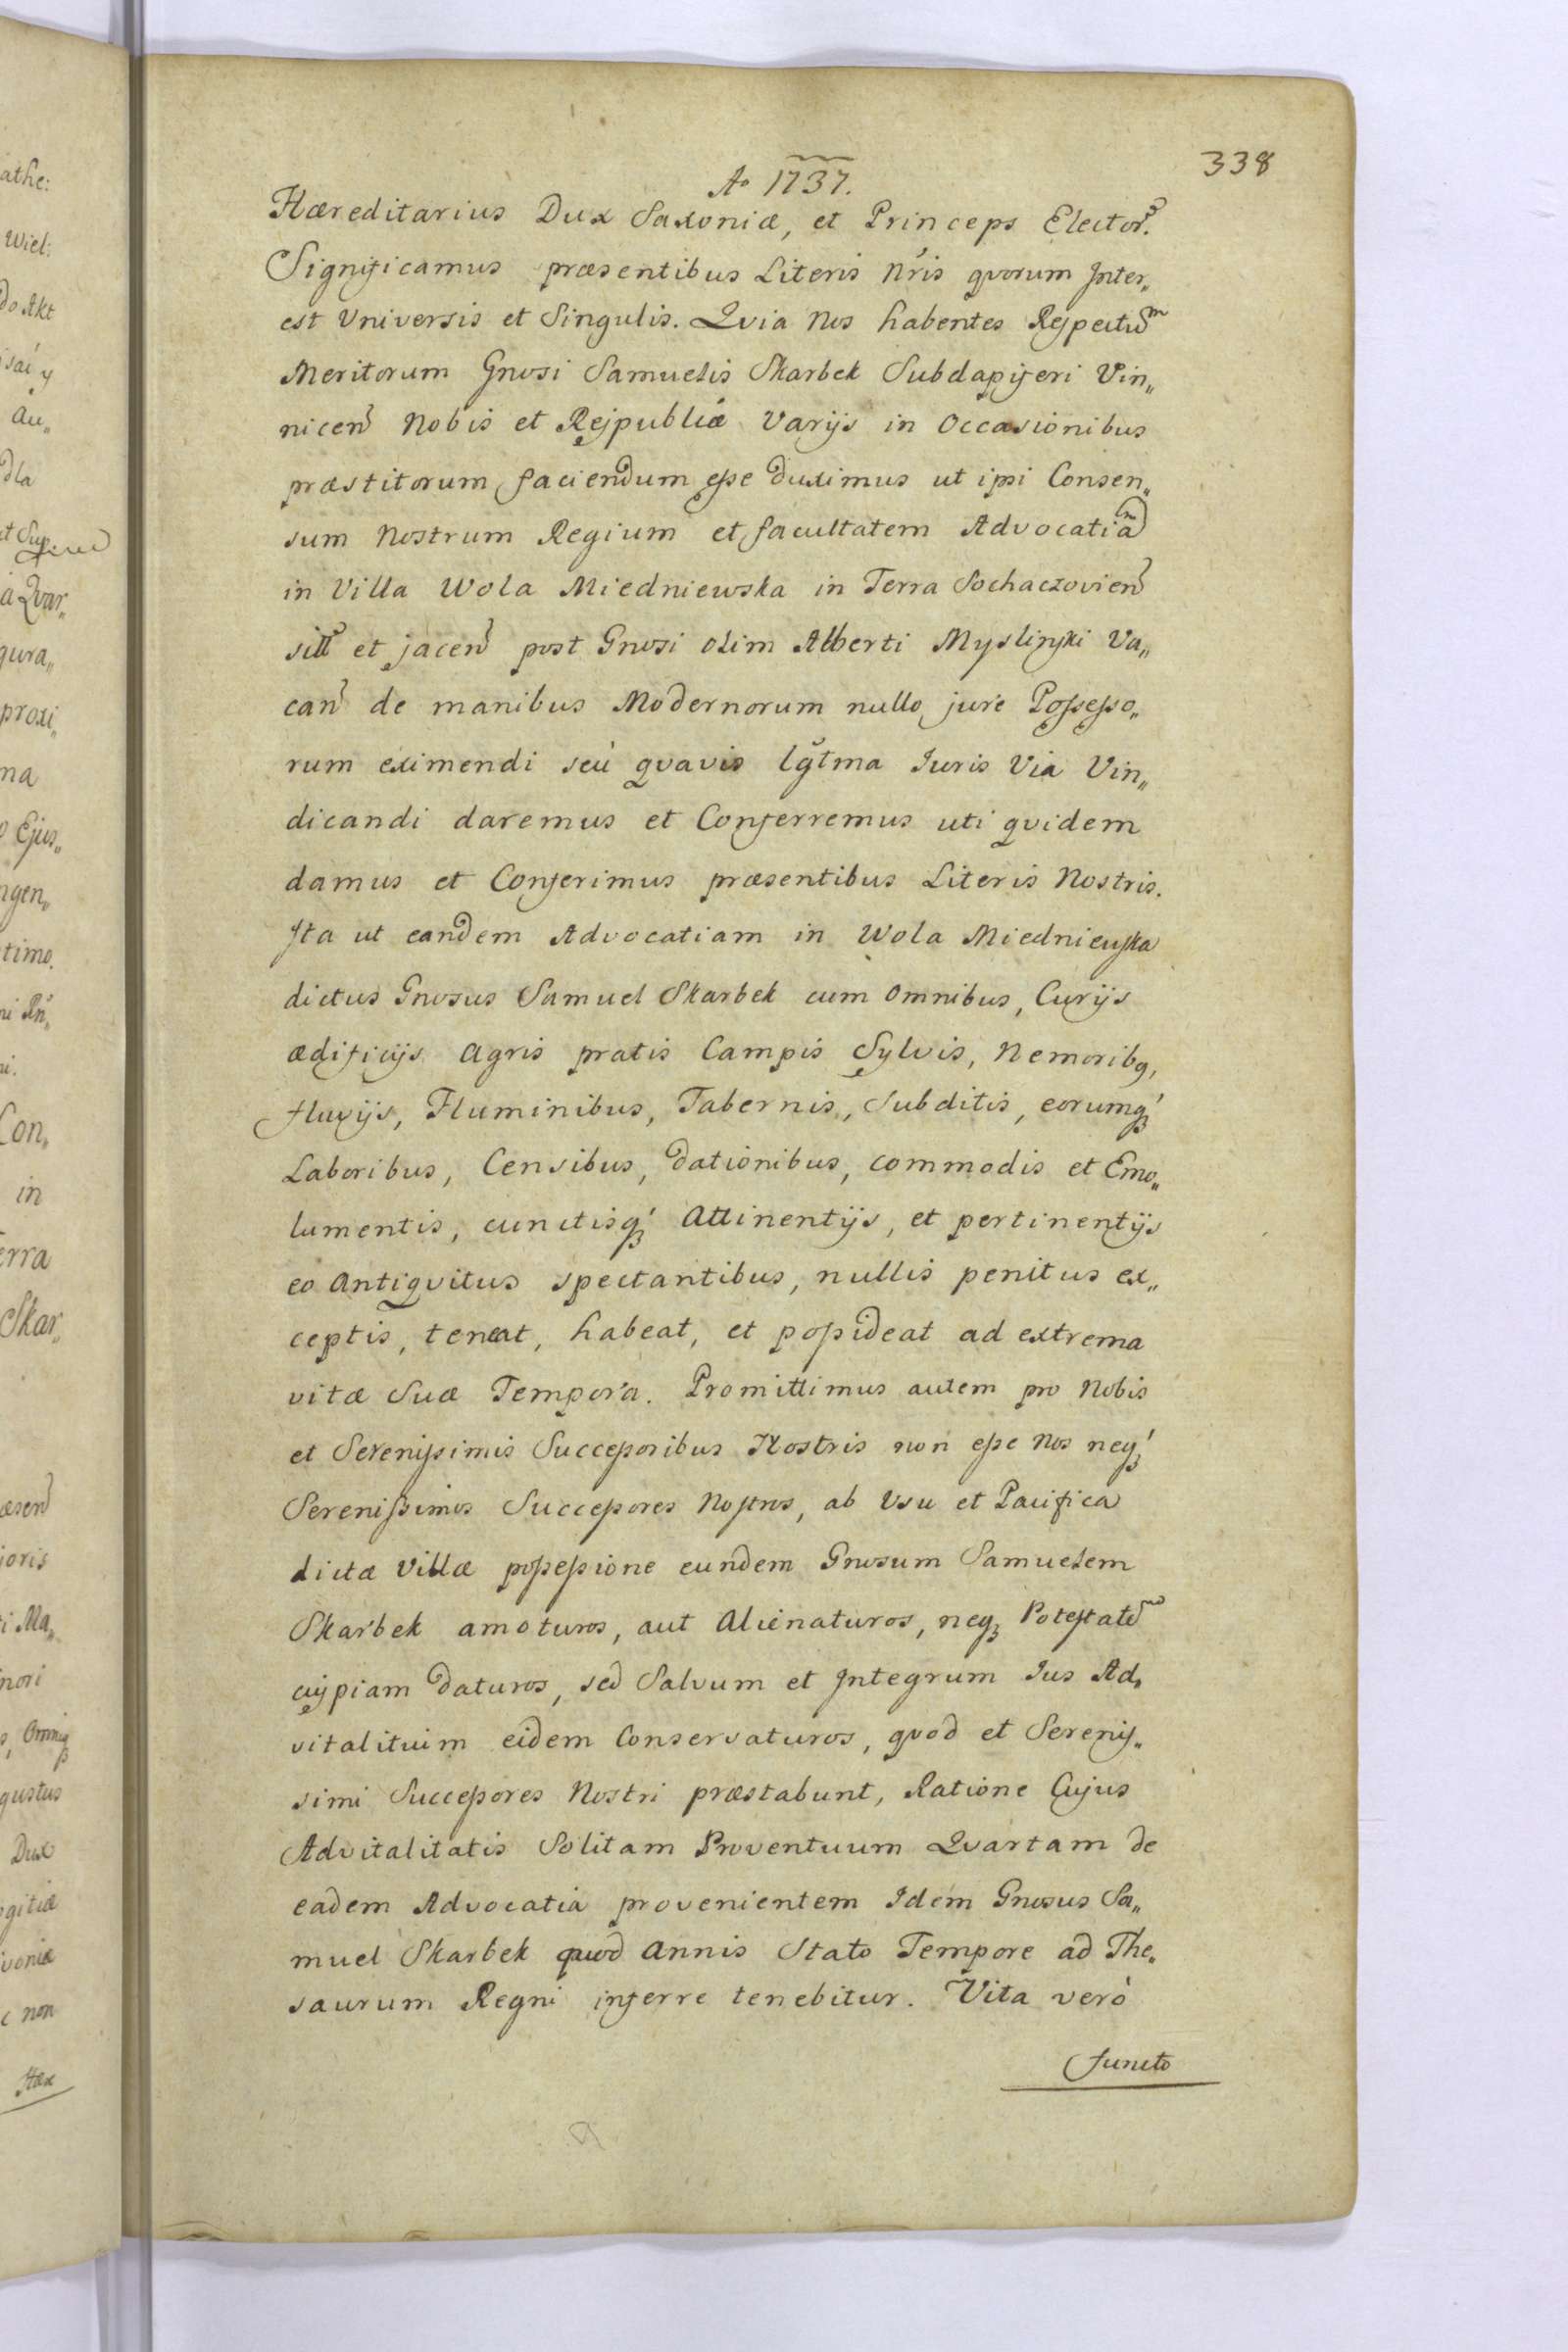 338
Ao 1737.
Hæreditarius Dux Saxoniæ, et Princeps Elector.
Significamus præsentibus Literis Nris qvorum Inter„
est Universis et Singulis. Qvia Nos habentes Respectum
Meritorum Gnosi Samuelis Skarbek Subdapiferi Vin„
nicen Nobis et Reipublicæ Varijs in Occasionibus
præstitorum faciendum esse duximus ut ipsi Consen„
sum Nostrum Regium et facultatem Advocatiam
in Villa Wola Miedniewska in Terra Sochaczovien
sitt et jacen post Gnosi olim Alberti Myslinski Va„
can de manibus Modernorum nullo jure Possesso„
rum eximendi seu qvavis lgtma Iuris Via Vin„
dicandi daremus et Conferremus uti qvidem
damus et Conferimus præsentibus Literis Nostris.
Ita ut eandem Advocatiam in Wola Miedniewska
dictus Gnosus Samuel Skarbek cum Omnibus, Curijs
ædificijs Agris pratis Campis Sylvis, Nemoribq,
fluvijs, Fluminibus, Tabernis, Subditis, eorumq
Laboribus, Censibus, dationibus, commodis et Emo„
lumentis, cunctisq Attinentijs, et pertinentijs
eo Antiqvitus spectantibus, nullis penitus ex„
ceptis, teneat, habeat, et possideat ad extrema
vitæ Suæ Tempora. Promittimus autem pro Nobis
et Serenissimis Successoribus Nostris non esse Nos neq
Serenissimos Successores Nostros, ab Usu et Pacifica
dictæ Villæ possessione eundem Gnosum Samuelem
Skarbek amoturos, aut Alienaturos, neq Potestatem
cuipiam daturos, sed Salvum et Integrum Ius Ad„
vitalituim eidem Conservaturos, qvod et Serenis„
simi Successores Nostri præstabunt, Ratione Cujus
Advitalitatis Solitam Proventuum Qvartam de
eadem Advocatia provenientem Idem Gnosus Sa„
muel Skarbek quod Annis Stato Tempore ad The„
saurum Regni inferre tenebitur. Vita verò
functo